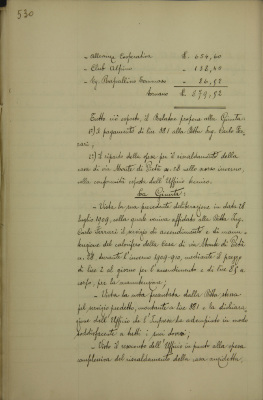 530
- Alleanza Cooperativa £. 456,60
- Club Alpino - 136,40
- Sig.
Sommano £.
Tutto ciò esposto, il Relatore propone alla Giunta:
1°) il pagamento di lire 181 alla Ditta Ing. Carlo Fer-
rari;
2°) il riparto della spesa pel riscaldamento della
casa di via Monte di Pietà n. 28 nello scorso inverno,
alla conformità esposta dall'Ufficio tecnico.
La Giunta:
- Vista la sua precedente deliberazione in data 28
luglio 1909, colla quale venne affidato alla Ditta Ing.
Carlo Ferrari il servizio di accendimento e di manu-
tenzione del calorifero della Casa di via Monte di Pietà
n. 28 durante l'inverno 1909-910, mediante il prezzo
di lire 2 al giorno per l'accendimento e di lire 55 a
corpo, per la manutenzione;
- Vista la nota presentata dalla Ditta stessa
pel servizio predetto, ascendente a lire 181 e la dichiara-
zione dell'Ufficio che l'Impresa ha adempiuto in modo
soddisfacente a tutti i suoi doveri;
- Visto il resoconto dell'Ufficio in punto alla spesa
complessiva del riscaldamento della casa anzidetta,